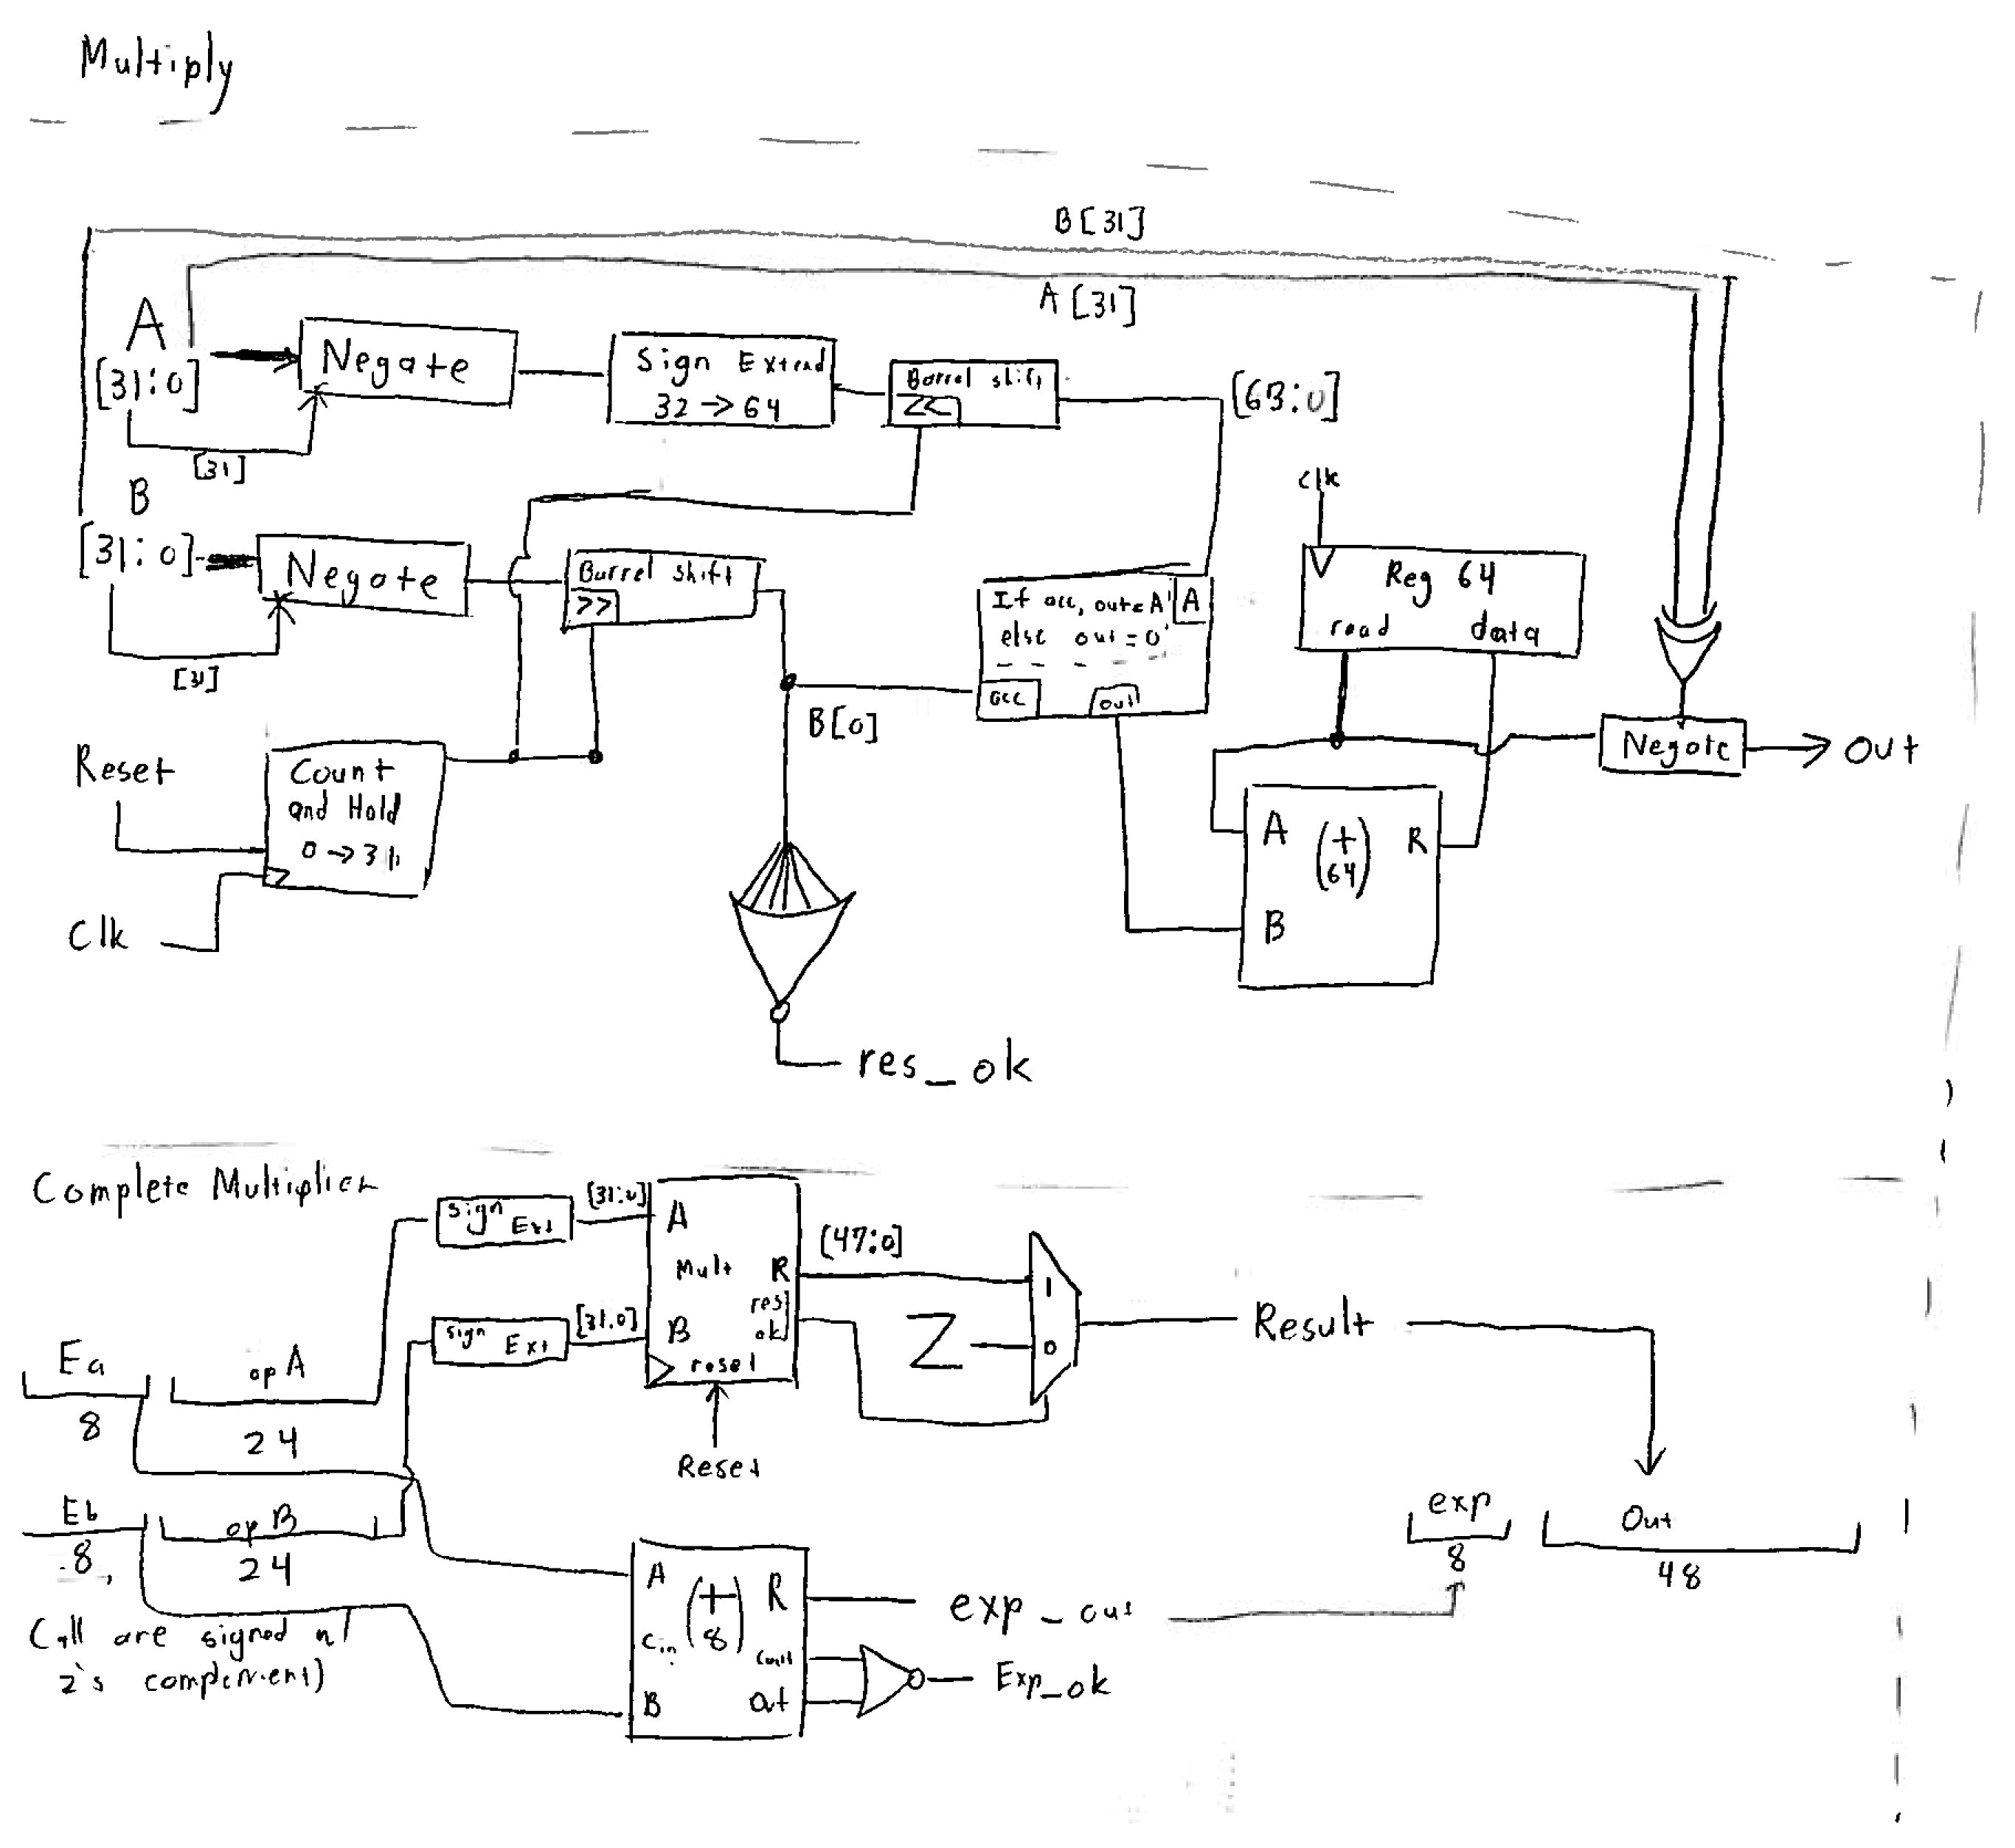 Multiply
B[31]
A[31]
A
[31:0]
[31]
Negate
Sign Extend
32 → 64
Barrel shift
<<
[63:0]
B
[31:0]
[31]
Negate
Barrel shift
>>
B[0]
If acc, out=A
else out=0
A
acc
out
clk
Reg 64
read data
Negate
Out
Reset
Clk
Count
and Hold
0→31
A
(+
64)
R
B
res_ok
Complete Multiplier
Sign Ext
[31:0]
sign Ext
[31:0]
A
Mult R
res
ok
B
reset
Reset
[47:0]
1
Z
0
Result
Ea
8
opA
24
Eb
8
opB
24
(all are signed in
2's complement)
A
(+
8)
R
Cin
B
Cout
exp_out
Exp_ok
exp
8
Out
48